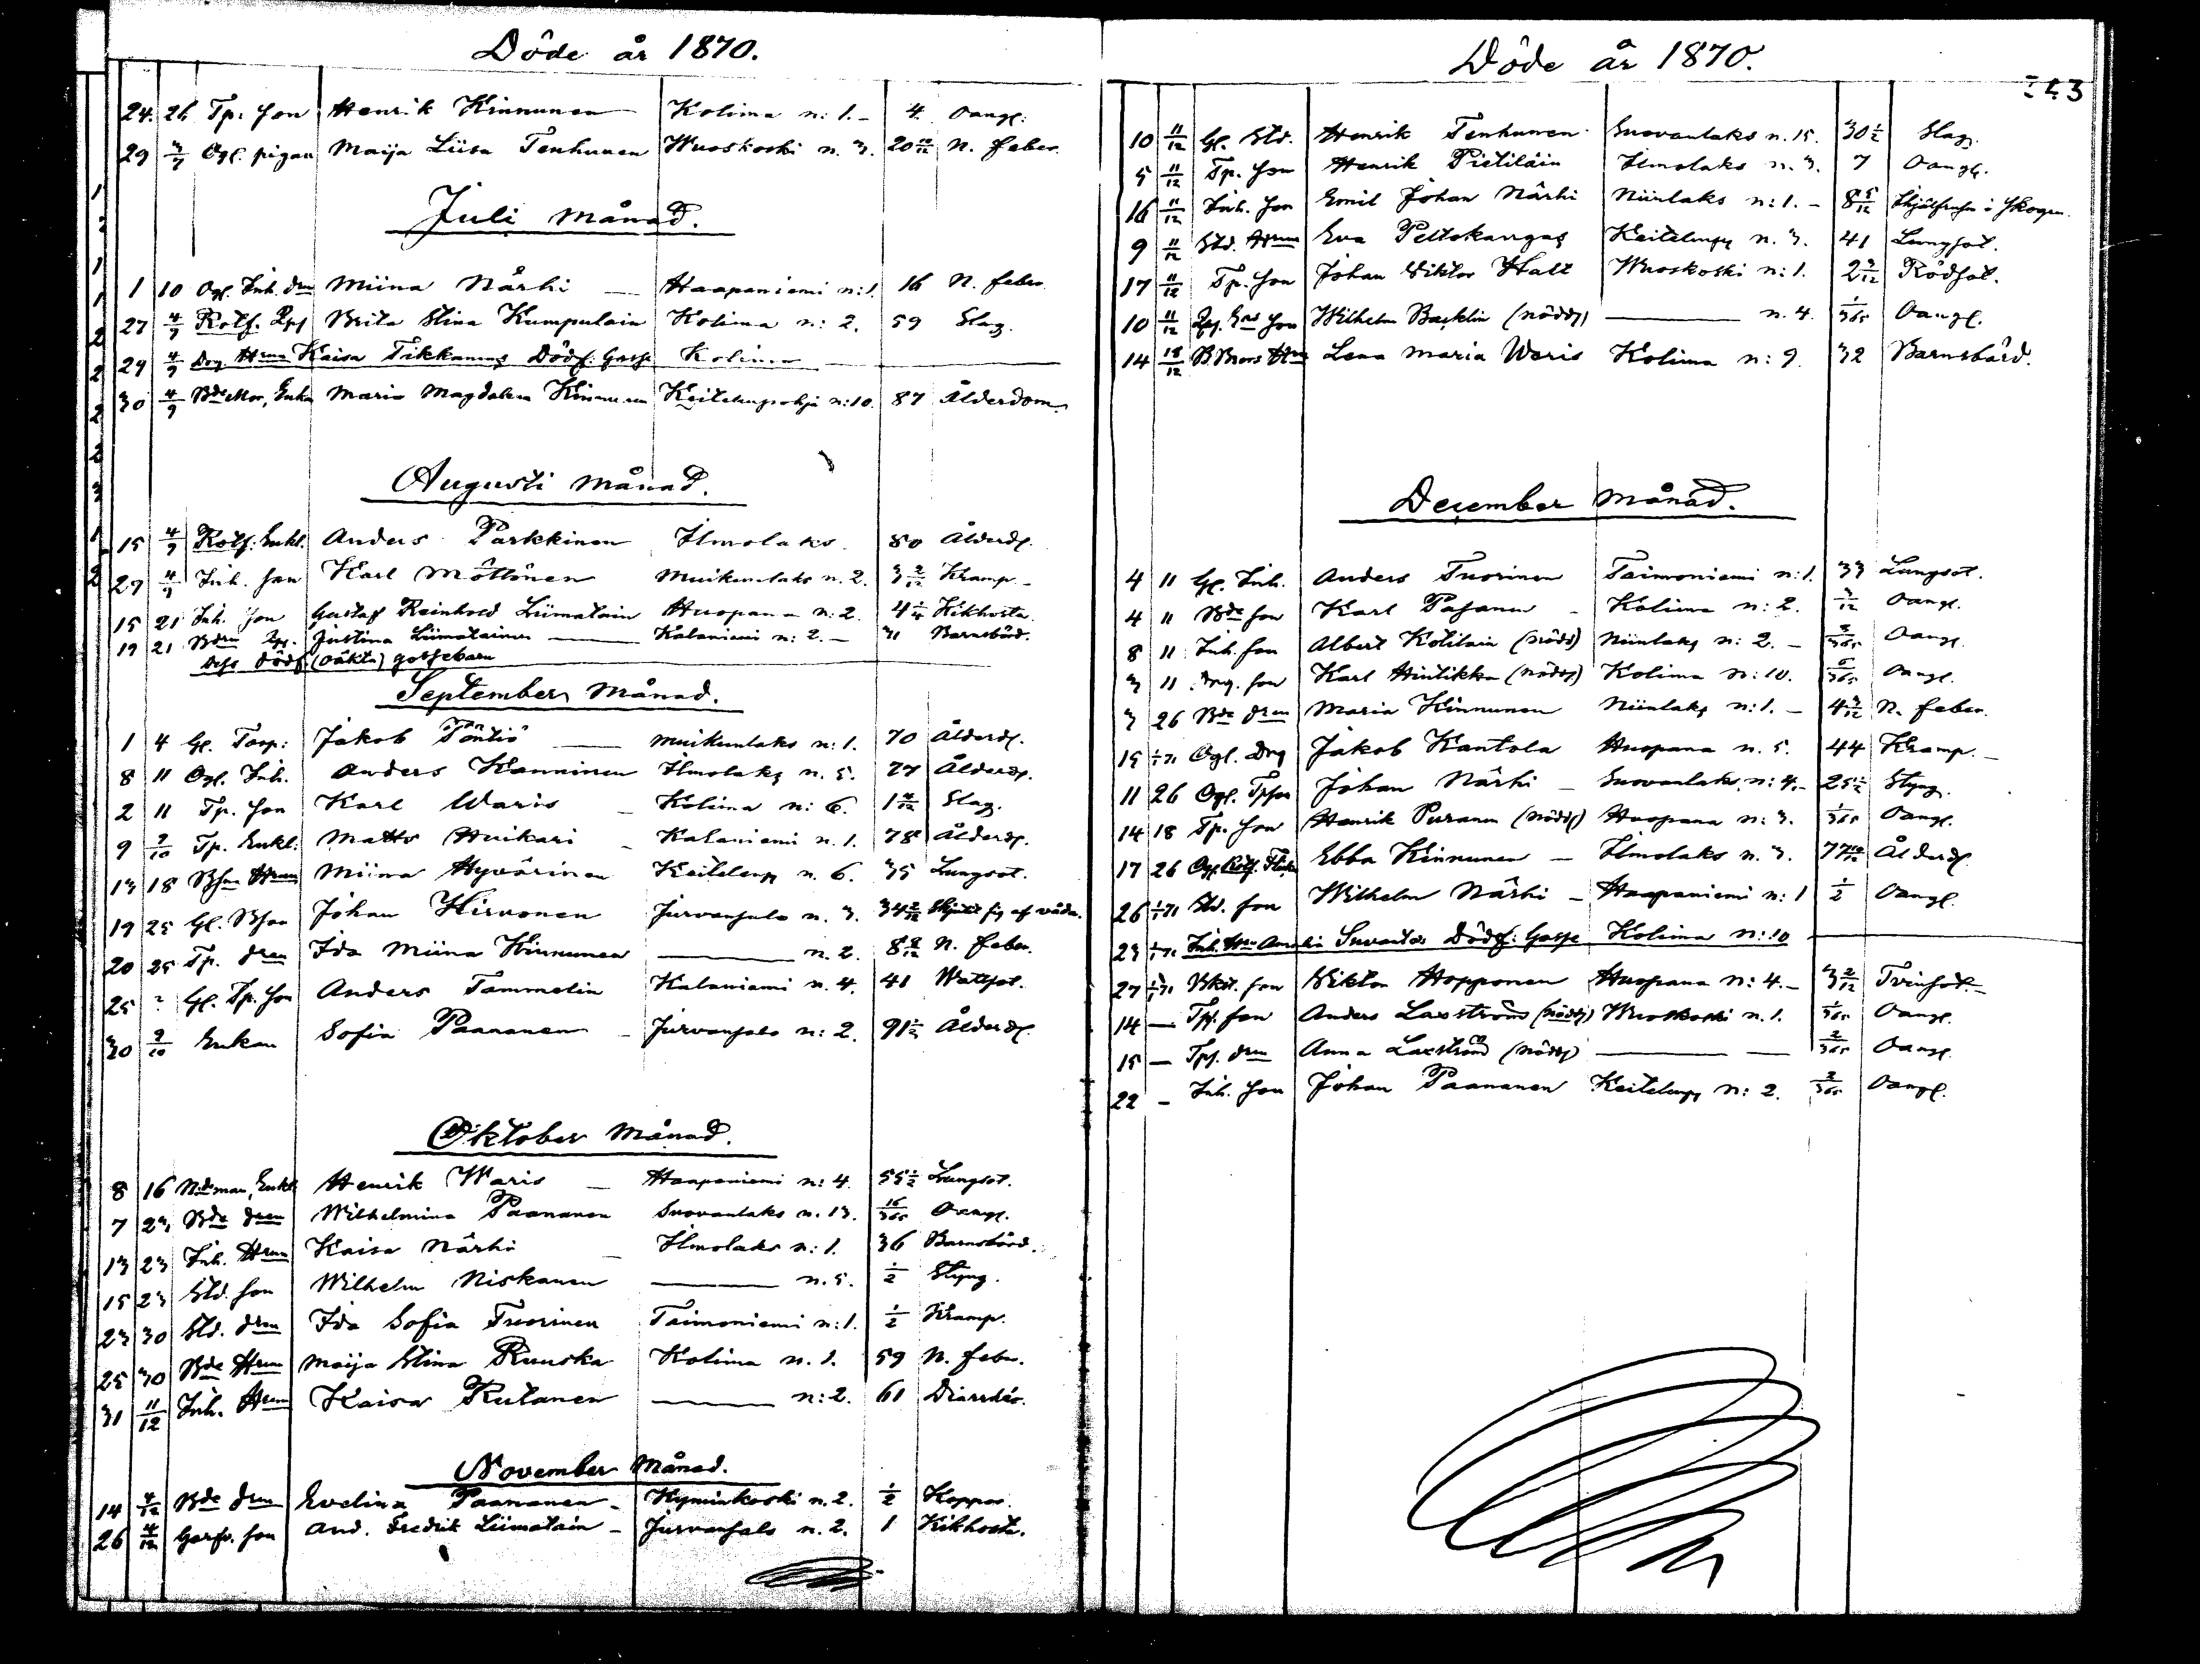 Döde år 1870.
24. 26 Tp. son Henrik Kinnunen Kolima n: 1. - 4. oangf.
29 3/7 Ogf. pigan Maija Liisa Tenhunen Wuoskoski n. 3. 20 10/12 N. feber.
Juli månad.
1 10 Ogf. Inh. drn Miina Närhi — Haapaniemi n: 1. 16 N. feber.
27 4/9 Rotf. Kumpulain Brita Stina Kolima n: 2. 59 Slag.
29 4/9 Drg. Hrun Kaisa Tikkanens Dödf: Gosse Kolima —
30 4/9 Bde Mor, Enka Maria Magdalena Kinnunen Keitelenpohja n: 10. 87 Ålderdom.
Augusti månad.
15 4/9 Rotf. Enkl. Anders Parkkinen Ilmolaks. 80 Ålderd.
27 4/9 Inh. son Karl Möttönen Muikunlaks n. 2. 3 2/12 Kramp. -
15 21 Inh. son Gustaf Reinhold Liimatain Huopana n: 2. 4 1/4 Kikhosta.
19 21 Justina Liimatainen — Kalaniemi n: 2. - 31 Barnsbörd.
Dess dödf. (oäkta) gossebarn
September månad.
1 4 Gf. Torp: Jakob Töntiö — Muikunlaks n: 1. 70 Ålderd.
8 11 Ogf. Inh. Anders Kanninen Ilmolaks n. 5. 77 Ålderd.
2 11 Tp. son Karl Waris - Kolima n: 6. 1 4/12 Slag.
9 9/10 Tp. Enkl. Matts Huikari - Kalaniemi n. 1. 78 Ålderd.
13 18 Bsn Hrun Miina Hyvärinen Keitelenp n. 6. 35 Lungsot.
19 25 Gf. Bson Johan Hirvonen Jurvansalo n. 3. 34 2/12 Skjutit sig af våda.
20 25 Tp. drn Ida Miina Kinnunen — n. 2. 8 8/12 N. feber.
25 - Gf. Tp. son Anders Tammelin Kalaniemi n. 4. 41 Wattsot.
30 9/10 Enkan Sofia Paananen - Jurvansalo n: 2. 91 1/2 Ålderd.
Oktober månad.
8 16 Nidman, Enkl. Henrik Waris - Haapaniemi n: 4. 55 1/2 Lungsot.
7 23 Bde drn Wilhelmina Paananen Suovanlaks n. 13. 16/365 Oangf.
13 23 Inh. Hrun Kaisa Närhi - Ilmolaks n: 1. 36 Barnsbörd.
15 23 Std. son Wilhelm Niskanen — n. 5. 1/2 Styng.
23 30 Std. drn Ida Sofia Tuorinen Taimoniemi n: 1. 1/2 Kramp.
25 30 Bde Hrun Maija Stina Ruuska Kolima n. 1. 59 N. feber.
31 11/12 Inh. Hrun Kaisa Rutanen — n: 2. 61 Diarrhée.
November månad.
14 4/12 Bde drn Evelina Paananen - Kyminkoski n. 2. 1/2 Koppor.
26 4/12 son And. Fredrik Liimatain - Jurvansalo n. 2. 1 Kikhosta.
Döde år 1870.
243
10 11/12 Gf. Std. Henrik Tenhunen Suovanlaks n. 15. 30 1/2 Slag.
5 11/12 Tp. son Henrik Pietiläin Ilmolaks n. 3. 7 Oangf.
16 11/12 Inh. son Emil Johan Närhi Niinlaks n: 1. - 8 5/12 i skogen.
9 11/12 Std. Hrun Eva Peltokangas Keitelenp n. 3. 41 Lungsot.
17 11/12 Tp. son Johan Wiktor Halt Wuoskoski n: 1. 2 9/12 Rödsot.
10 11/12 son Wilhelm Backlin (nöddf) — n. 4. 1/365 Oangf.
14 18/12 Lena Maria Waris Kolima n: 9. 32 Barnsbörd.
December månad.
4 11 Gf. Inh. Anders Tuorinen Taimoniemi n: 1. 33 Lungsot.
4 11 Bde son Karl Pasanen - Kolima n: 2. 3/12 oangf.
8 11 Inh. son Albert Kotilain (nödd) Niinlaks n: 2. - 3/365 oangf.
3 11 Drg. son Karl Hintikka (nödd) Kolima n: 10. 6/365 oangf.
3 26 Bde drn Maria Kinnunen Niinlaks n: 1. - 4 3/12 N. feber.
15 1/1 71 Ogf. Drg Jakob Kantola Huopana n. 5. 44 Kramp. -
11 26 Ogf. Tpson Johan Närhi - Suovanlaks, n: 4. - 25 1/2 Styng.
14 18 Tp. son Henrik Puranen (nödd) Huopana n: 3. 1/365 Oangf.
17 26 Ogf. Rotf. Ebba Kinnunen - Ilmolaks n. 3. 77 10/12 Ålderd.
26 1/1 71 Std. son Wilhelm Närhi - Haapaniemi n: 1 1/2 Oangf.
23 1/1 71 Inh. Hru Amalia Dödf: Gosse Kolima n: 10
27 1/1 71 son Wiktor Hopponen Huopana n: 4. - 3 2/12 Tvinsot. -
14 — Tpf. son Anders Laxström (nödd) Wuoskoski n. 1. 1/365 Oangf.
15 — Tpf. drn Anna Laxström (nödd) — — 2/365 Oangf.
22 - Inh. son Johan Paananen Keitelenp n: 2. 2/365 Oangf.